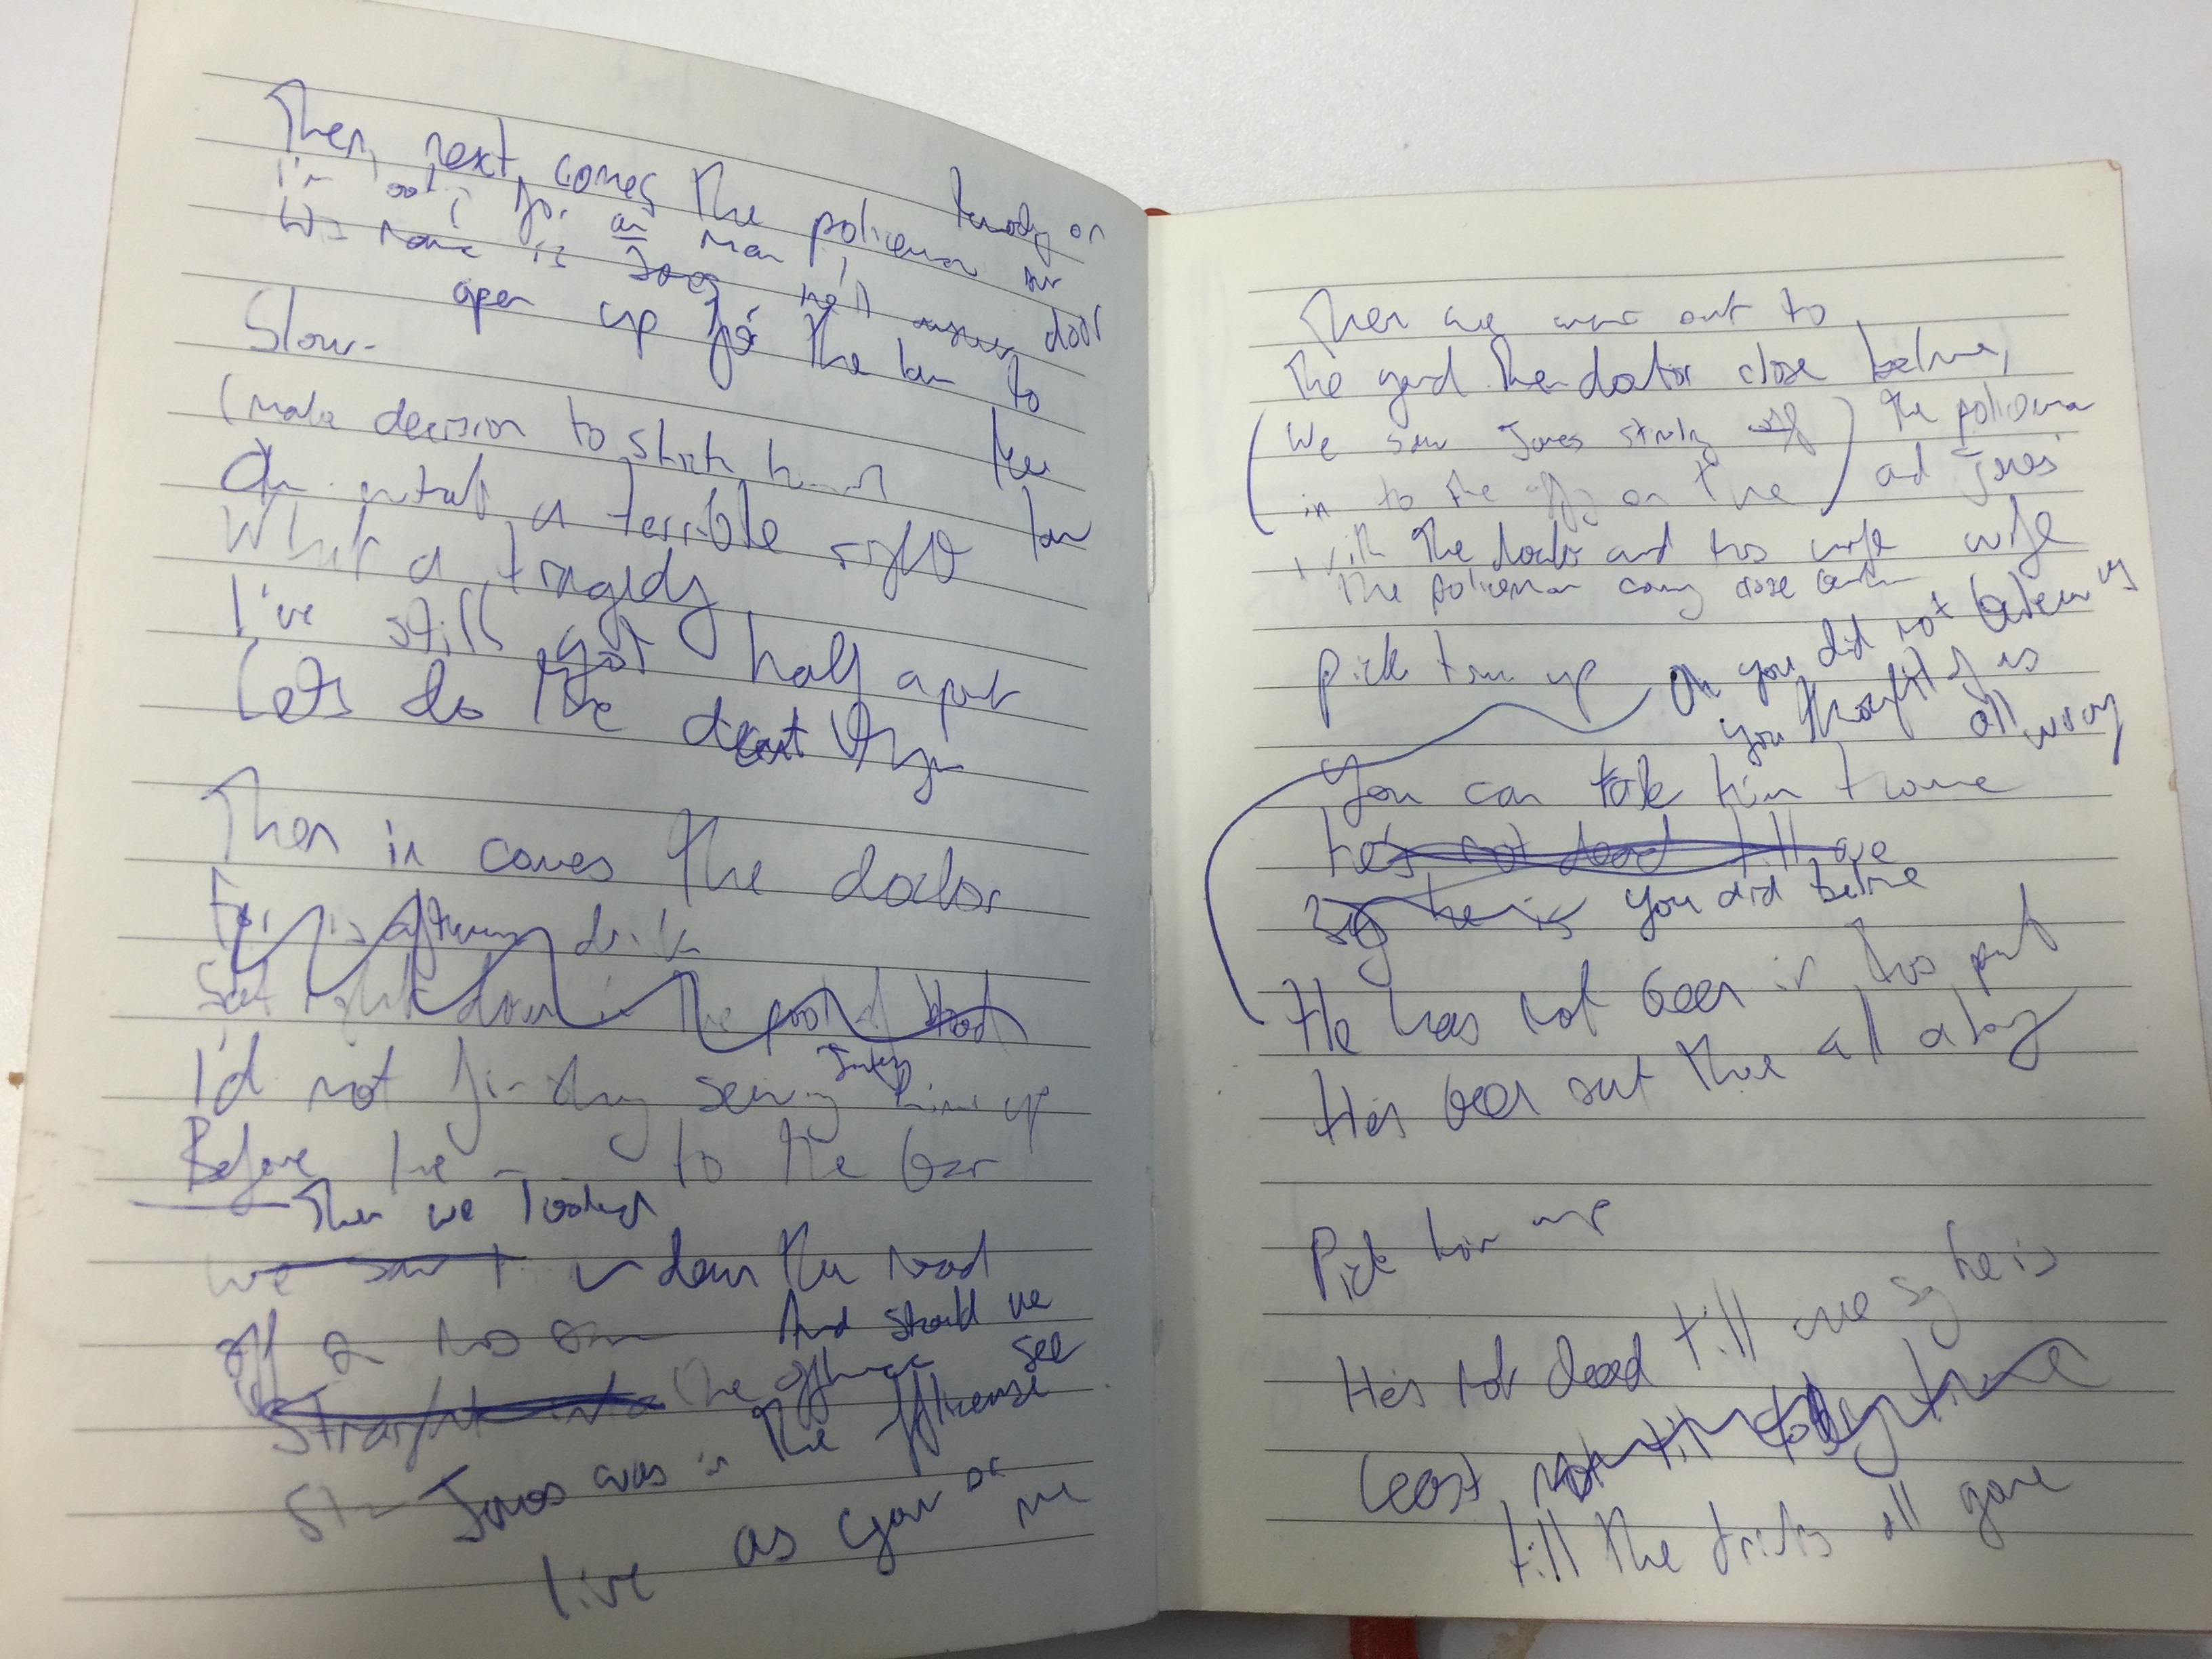 Then next comes the policeman
knocking on
our
door
I'm for an man
name is Jones he'll answer
open up for the law to
Slow
(make decision to stick
Oh what a terrible sight
law
What a tragedy
I've still got half a pint
Lets do the decent thing
Then in comes the doctor
For his afternoon drink
Sat right down in the pool of blood
I'd not fin thing seeing Jones him up
Before he to the bar
Then we looked
we saw down the road
off on his own
And should we
see
Straight into the offlicense
Jones was in the offlicense
live as you or me
Then we went out to
the yard the doctor close behind,
the policeman
and Jones'
wife
(We saw Jones off
in to the on the)
with the doctor and his wife
the policeman coming close behind
Pick him up
Oh you did not believe us
you thought us
all wrong
You can take him home
he's not dead till we
Say he is you did believe
He has not been in this pub
He's been out there all along
Pick him up
He's not dead till we say he is
Least not till time
till the drinks all gone